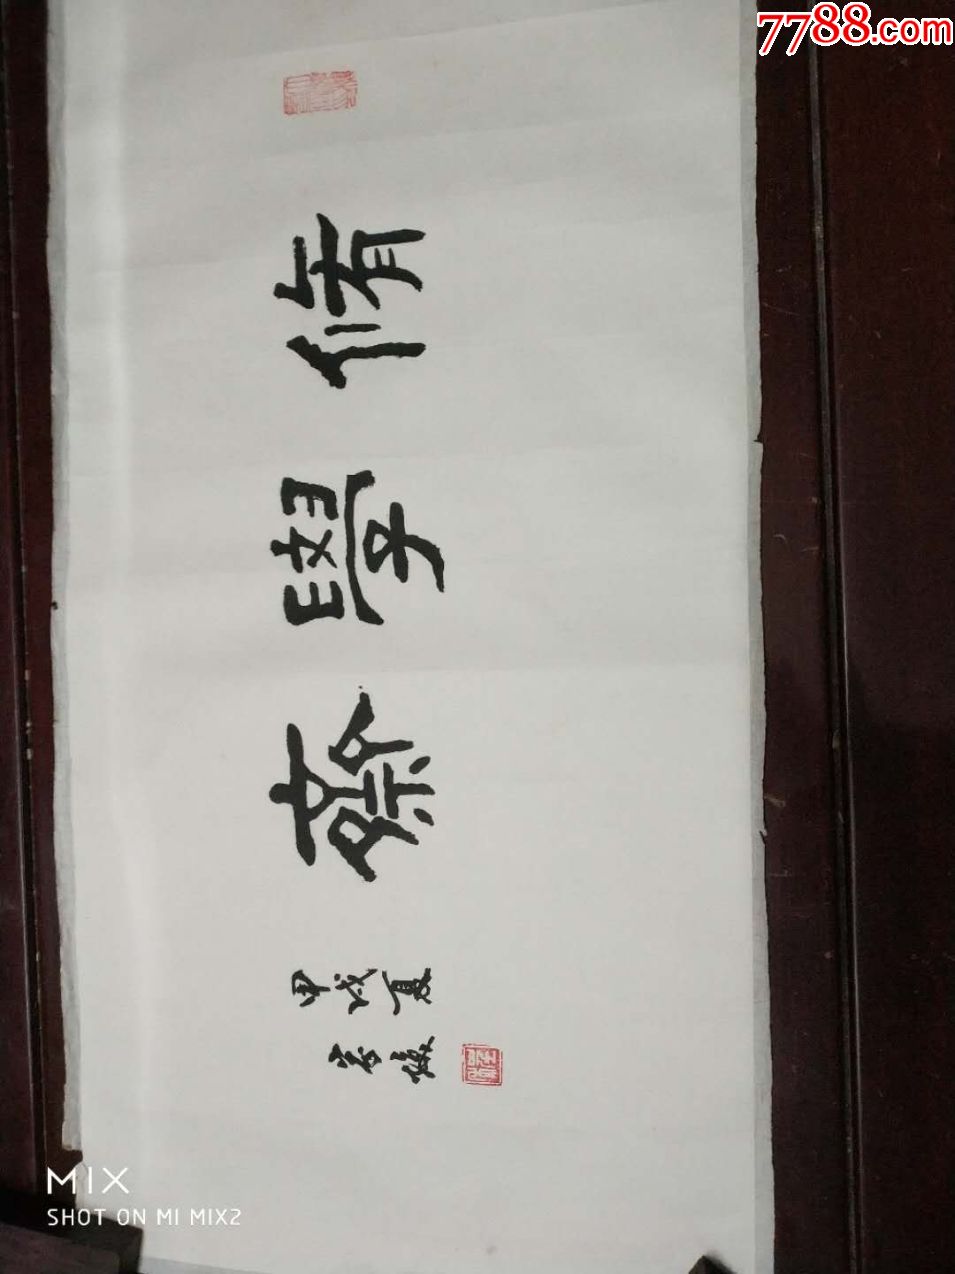 7788.com
脩學齋
甲戌夏
MIX
SHOT ON MI MIX2